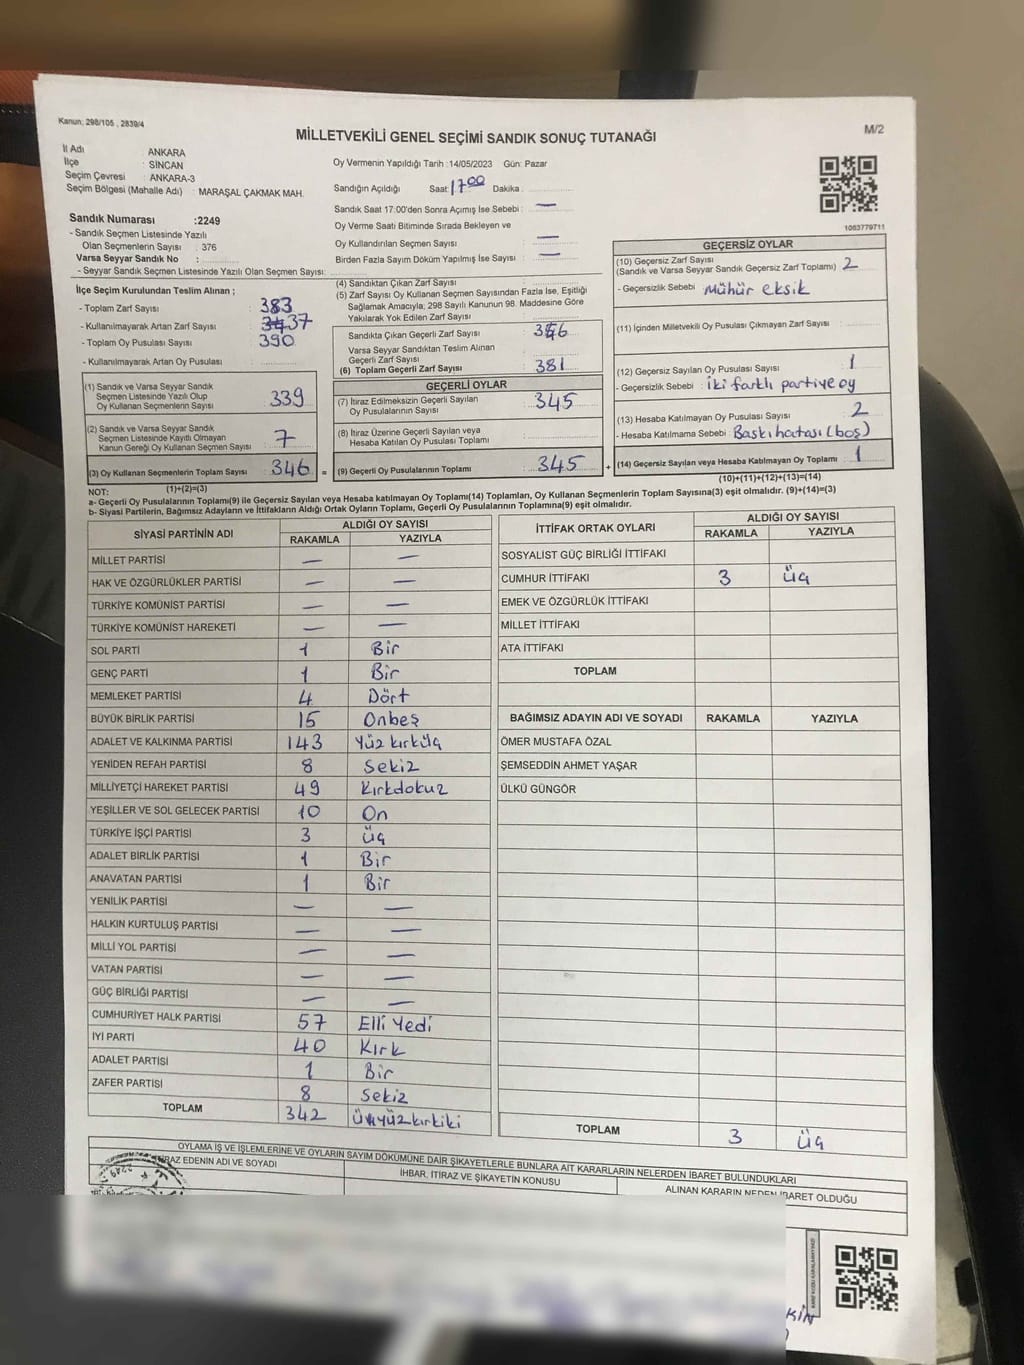 Kanun: 298/105 , 2839/4
M/2
MİLLETVEKİLİ GENEL SEÇİMİ SANDIK SONUÇ TUTANAĞI
İl Adı ANKARA
İlçe : SİNCAN
Seçim Çevresi : ANKARA-3
Seçim Bölgesi (Mahalle Adı) : MARAŞAL ÇAKMAK MAH.
Sandık Numarası :2249
- Sandık Seçmen Listesinde Yazılı
Olan Seçmenlerin Sayısı : 376
Varsa Seyyar Sandık No :
- Seyyar Sandık Seçmen Listesinde Yazılı Olan Seçmen Sayısı:
Oy Vermenin Yapıldığı Tarih :14/05/2023 Gün: Pazar
Sandığın Açıldığı Saat: 17 00 Dakika :
Sandık Saat 17:00'den Sonra Açımış İse Sebebi : —
Oy Verme Saati Bitiminde Sırada Bekleyen ve
Oy Kullandırılan Seçmen Sayısı : —
Birden Fazla Sayım Döküm Yapılmış İse Sayısı : —
1083779711
İlçe Seçim Kurulundan Teslim Alınan ;
- Toplam Zarf Sayısı : 383
- Kullanılmayarak Artan Zarf Sayısı : 37
- Toplam Oy Pusulası Sayısı : 390
- Kullanılmayarak Artan Oy Pusulası :
(1) Sandık ve Varsa Seyyar Sandık
Seçmen Listesinde Yazılı Olup
Oy Kullanan Seçmenlerin Sayısı 339
(2) Sandık ve Varsa Seyyar Sandık
Seçmen Listesinde Kayıtlı Olmayan
Kanun Gereği Oy Kullanan Seçmen Sayısı : 7
(3) Oy Kullanan Seçmenlerin Toplam Sayısı : 346 =
(1)+(2)=(3)
(4) Sandıktan Çıkan Zarf Sayısı :
(5) Zarf Sayısı Oy Kullanan Seçmen Sayısından Fazla İse, Eşitliği
Sağlamak Amacıyla; 298 Sayılı Kanunun 98. Maddesine Göre
Yakılarak Yok Edilen Zarf Sayısı :
Sandıkta Çıkan Geçerli Zarf Sayısı
Varsa Seyyar Sandıktan Teslim Alınan
Geçerli Zarf Sayısı
(6) Toplam Geçerli Zarf Sayısı : 381
GEÇERLİ OYLAR
(7) İtiraz Edilmeksizin Geçerli Sayılan
Oy Pusulalarının Sayısı : 345
(8) İtiraz Üzerine Geçerli Sayılan veya
Hesaba Katılan Oy Pusulası Toplamı
(9) Geçerli Oy Pusulalarının Toplamı : 345 +
GEÇERSİZ OYLAR
(10) Geçersiz Zarf Sayısı
(Sandık ve Varsa Seyyar Sandık Geçersiz Zarf Toplamı) : 2
- Geçersizlik Sebebi : Mühür eksik
(11) İçinden Milletvekili Oy Pusulası Çıkmayan Zarf Sayısı :
(12) Geçersiz Sayılan Oy Pusulası Sayısı : 1
- Geçersizlik Sebebi : iki farklı partiye oy
(13) Hesaba Katılmayan Oy Pusulası Sayısı : 2
- Hesaba Katılmama Sebebi : Baskı hatası (boş)
(14) Geçersiz Sayılan veya Hesaba Katılmayan Oy Toplamı : 1
(10)+(11)+(12)+(13)=(14)
NOT:
a- Geçerli Oy Pusulalarının Toplamı(9) ile Geçersiz Sayılan veya Hesaba katılmayan Oy Toplamı(14) Toplamları, Oy Kullanan Seçmenlerin Toplam Sayısına(3) eşit olmalıdır. (9)+(14)=(3)
b- Siyasi Partilerin, Bağımsız Adayların ve İttifakların Aldığı Ortak Oyların Toplamı, Geçerli Oy Pusulalarının Toplamına(9) eşit olmalıdır.
SİYASİ PARTİNİN ADI ALDIĞI OY SAYISI
RAKAMLA YAZIYLA
MİLLET PARTİSİ — —
HAK VE ÖZGÜRLÜKLER PARTİSİ — —
TÜRKİYE KOMÜNİST PARTİSİ — —
TÜRKİYE KOMÜNİST HAREKETİ — —
SOL PARTİ 1 Bir
GENÇ PARTİ 1 Bir
MEMLEKET PARTİSİ 4 Dört
BÜYÜK BİRLİK PARTİSİ 15 Onbeş
ADALET VE KALKINMA PARTİSİ 143 Yüz kırküç
YENİDEN REFAH PARTİSİ 8 Sekiz
MİLLİYETÇİ HAREKET PARTİSİ 49 Kırkdokuz
YEŞİLLER VE SOL GELECEK PARTİSİ 10 On
TÜRKİYE İŞÇİ PARTİSİ 3 üç
ADALET BİRLİK PARTİSİ 1 Bir
ANAVATAN PARTİSİ 1 Bir
YENİLİK PARTİSİ — —
HALKIN KURTULUŞ PARTİSİ — —
MİLLİ YOL PARTİSİ — —
VATAN PARTİSİ — —
GÜÇ BİRLİĞİ PARTİSİ — —
CUMHURİYET HALK PARTİSİ 57 Elli Yedi
İYİ PARTİ 40 Kırk
ADALET PARTİSİ 1 Bir
ZAFER PARTİSİ 8 Sekiz
TOPLAM 342 üçyüzkırkiki
İTTİFAK ORTAK OYLARI ALDIĞI OY SAYISI
RAKAMLA YAZIYLA
SOSYALİST GÜÇ BİRLİĞİ İTTİFAKI
CUMHUR İTTİFAKI 3 üç
EMEK VE ÖZGÜRLÜK İTTİFAKI
MİLLET İTTİFAKI
ATA İTTİFAKI
TOPLAM
BAĞIMSIZ ADAYIN ADI VE SOYADI RAKAMLA YAZIYLA
ÖMER MUSTAFA ÖZAL
ŞEMSEDDİN AHMET YAŞAR
ÜLKÜ GÜNGÖR
TOPLAM 3 üç
OYLAMA İŞ VE İŞLEMLERİNE VE OYLARIN SAYIM DÖKÜMÜNE DAİR ŞİKAYETLERLE BUNLARA AİT KARARLARIN NELERDEN İBARET BULUNDUKLARI
RAZ EDENİN ADI VE SOYADI İHBAR, İTİRAZ VE ŞİKAYETİN KONUSU ALINAN KARARIN NEDEN İBARET OLDUĞU
2249
KİN